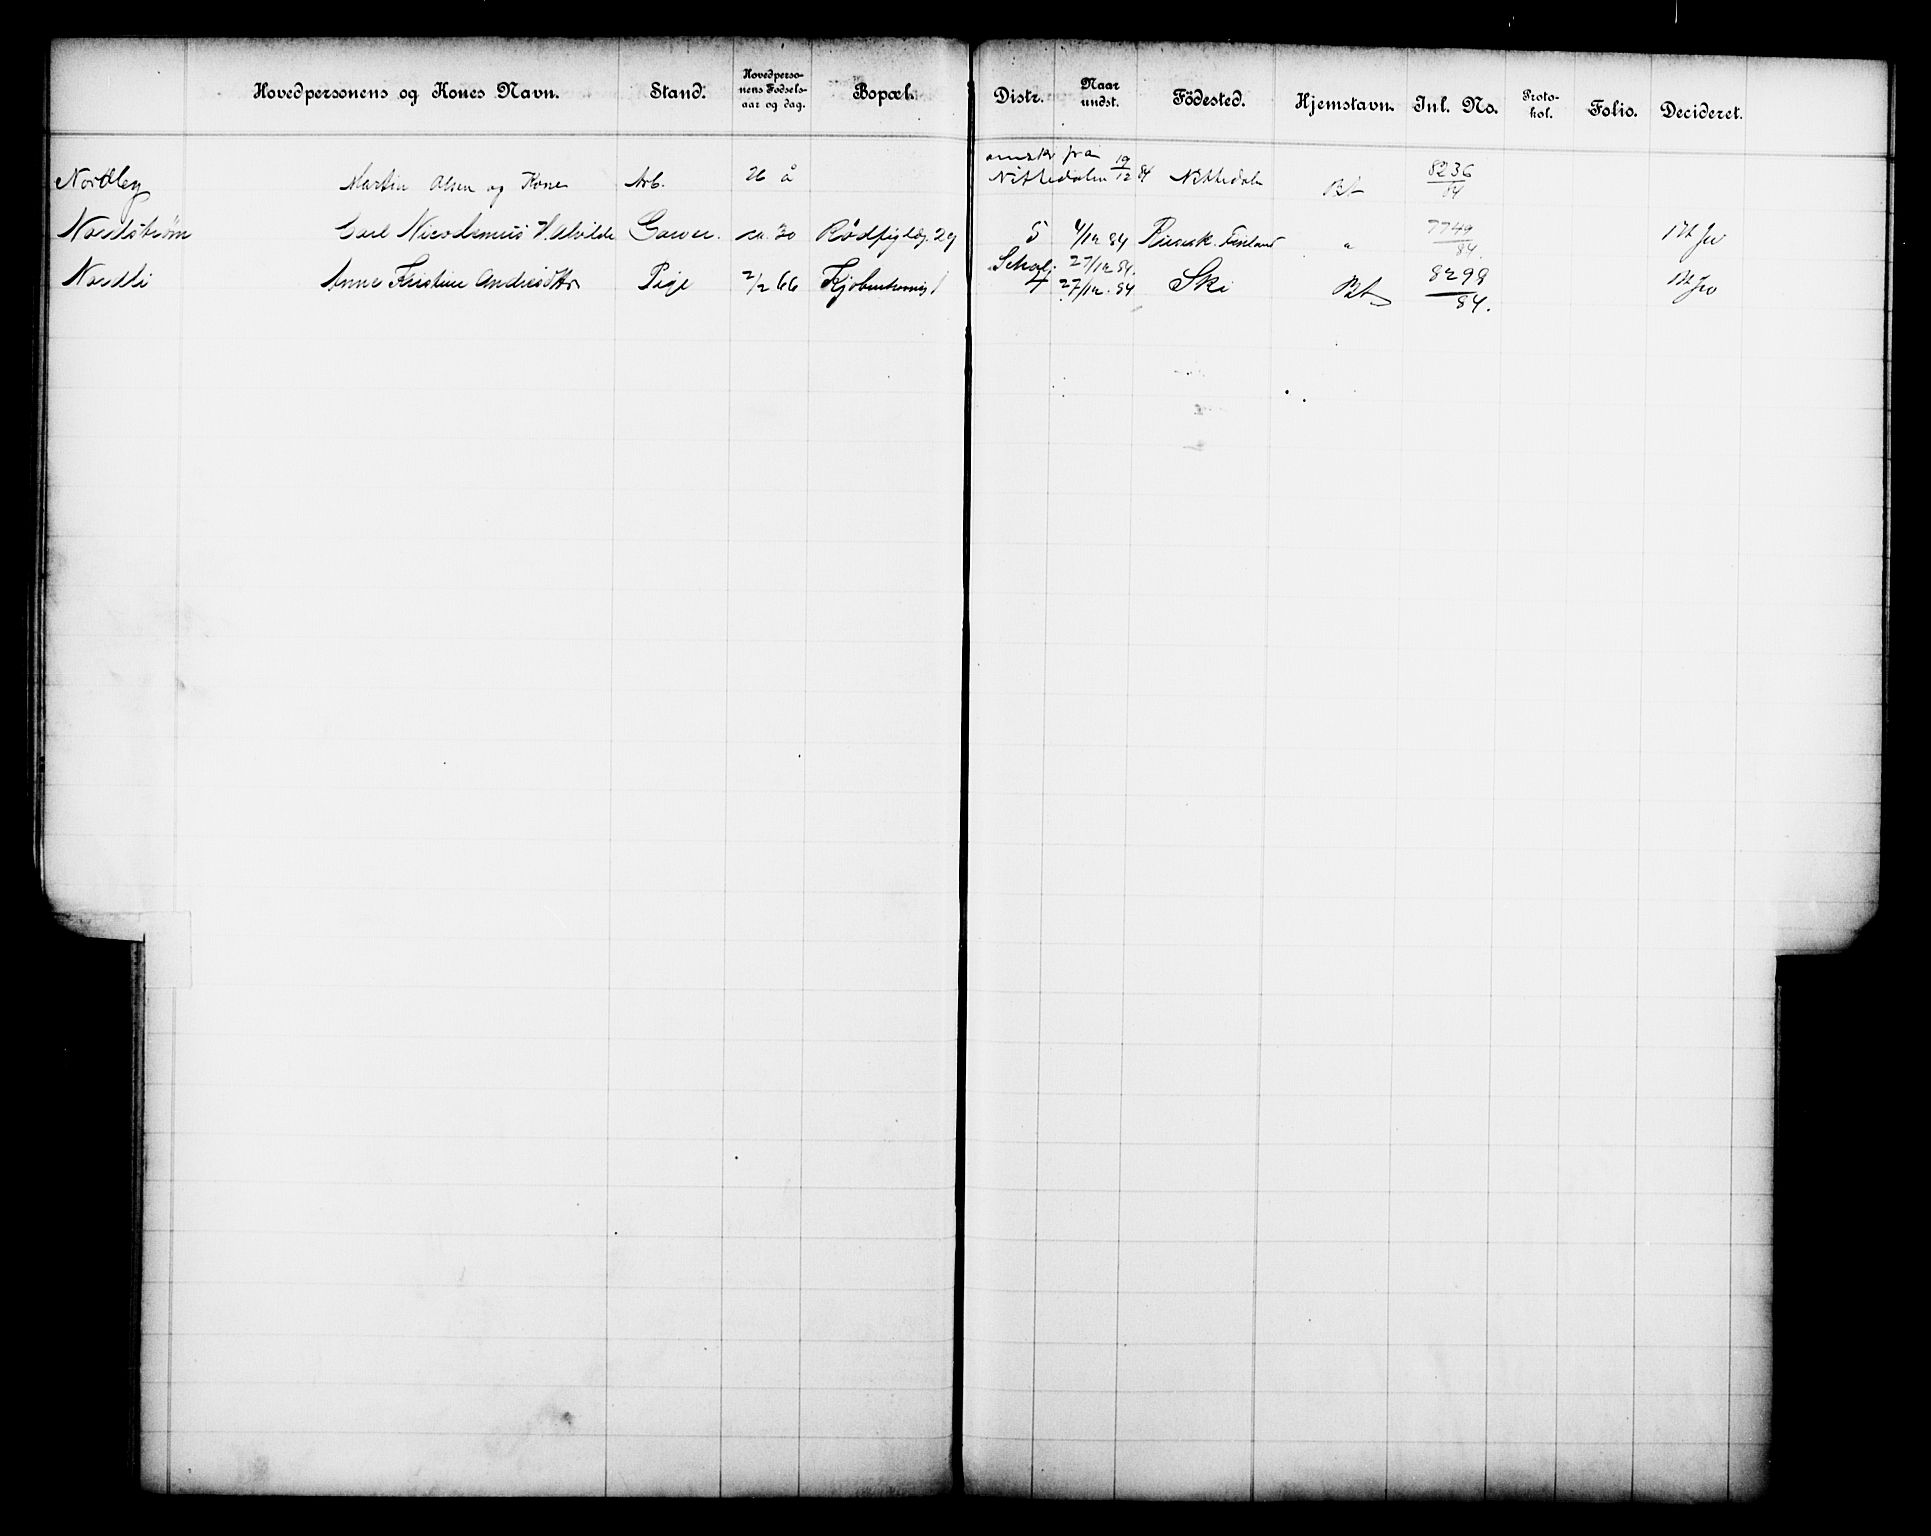 Hovedpersonens og Kones Navn. Stand. Hovedperso-nens Fødsels-aar og dag. Bopæl. Distr. Naar undst. Födested. Hjemstavn. Inl. No. Proto-kol. Folio. Decideret.
Nordby Martin Olsen og Kone Arb. 26 å omskr fra Nittedalen 19/12 84 Nittedalen 8236/84
Nordstrøm Carl Nicodemus Garver. ca. 30 Rødfyldg. 29 5 4/12 84 Finland " 7749/84.
Nordli Anne Kristine Andreasdtr Pige 2/2 66 Kjøbenhavnsg 1 4 27/12 84. 27/12. 84 Ski 8298/84.